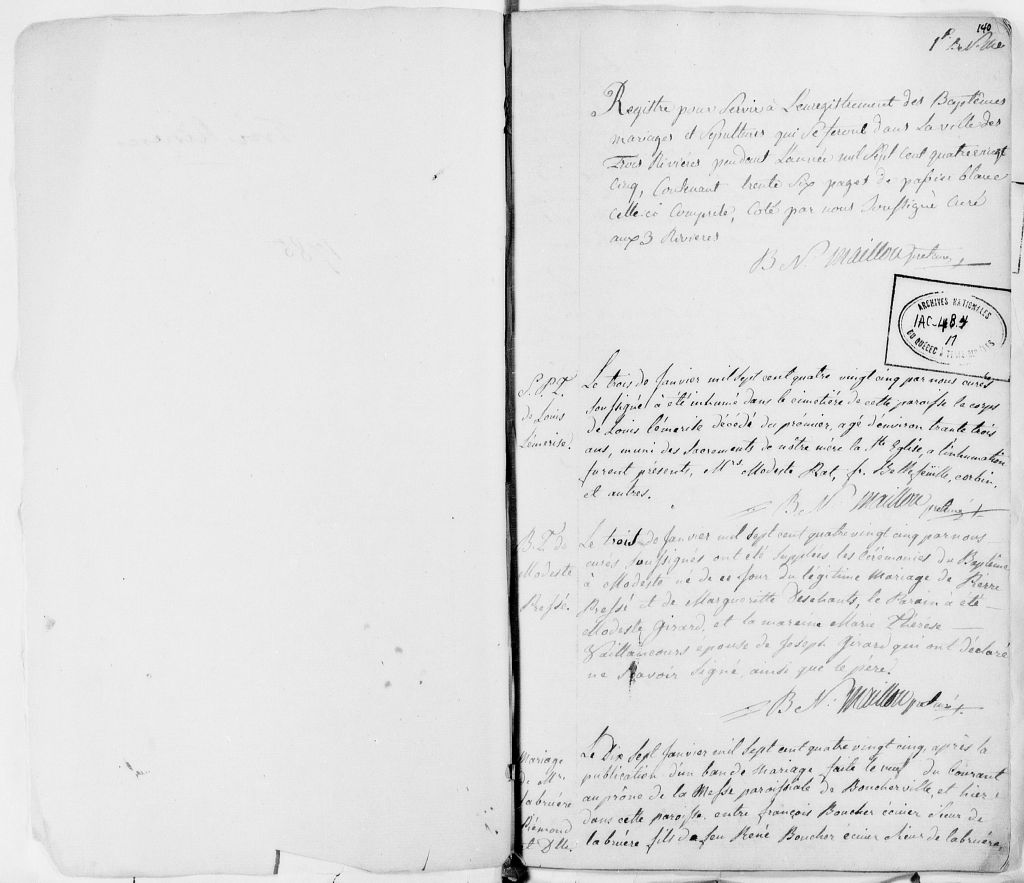 140
1re B. N. Mre
Registre pour Servir à L'enregistrement des Baptêmes
mariages et Sépultures qui Se feront dans La ville des
Trois Rivières pendant L'année mil Sept Cent quatre vingt
Cinq, Contenant trente Six pages de papier blanc
celle cÿ Comprise, Coté par nous Soussigné Curé
aux 3 Rivieres
B N. Maillou ptre curé
ARCHIVES NATIONALES
1AC-484
17
DU QUÉBEC À TROIS-RIVIÈRES
1785
S.P.T.
de Louis
Lémerise.
Le trois de Janvier mil sept cent quatre vingt cinq par nous curés
soussigné à été inhumé dans le cimetiére de cette paroisse le corps
de Louis Lémerise décédé du prémier, agé d'environ trante trois
ans, muni des sacrements de nôtre mère la Ste Eglise, a l'inhumation
furent présents, Mrs Modeste Rat, fr. Bellefeüille, corbin,
et autres.
B N. Maillou ptre curé
B.T. de
Modeste
Pressé.
Le trois de Janvier mil sept cent quatre vingt cinq par nous
curés soussignés ont été supplées les Cérémonies du Baptême
à Modeste né de ce jour du légitime Mariage de Pierre
Pressé et de Margueritte Deschants, le Parain à été
Modeste Girard, et la mareine Marie Thérèse
Vaillancours epouse de Joseph Girard qui ont déclaré
ne savoir signé, ainsi que le pére.
B N. Maillou ptre curé
Mariage
de Mr.
labruére
Rémond
et Dlle.
Le Dix Sept Janvier mil sept cent quatre vingt cinq, après la
publication d'un ban de Mariage faite le neuf du Courant
au prône de la Messe paroissiale de Boucherville, et hier
dans cette paroisse, entre françois Boucher écuier Sieur de
labruére fils de feu René Boucher écuier Sieur de labruére,